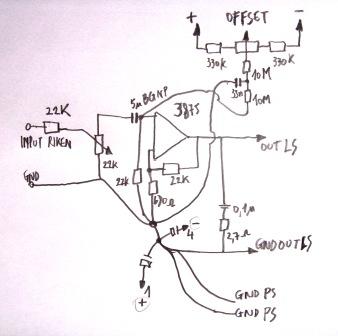 + OFFSET -
330K 330K
10M
33n
10M
5µ BGNP
3875
22K
INPUT RIKEN
22K
22K
22K
680Ω
OUT LS
GND
0,1µ
2,7Ω
4 -
GND OUT LS
1
+
GND PS
GND PS